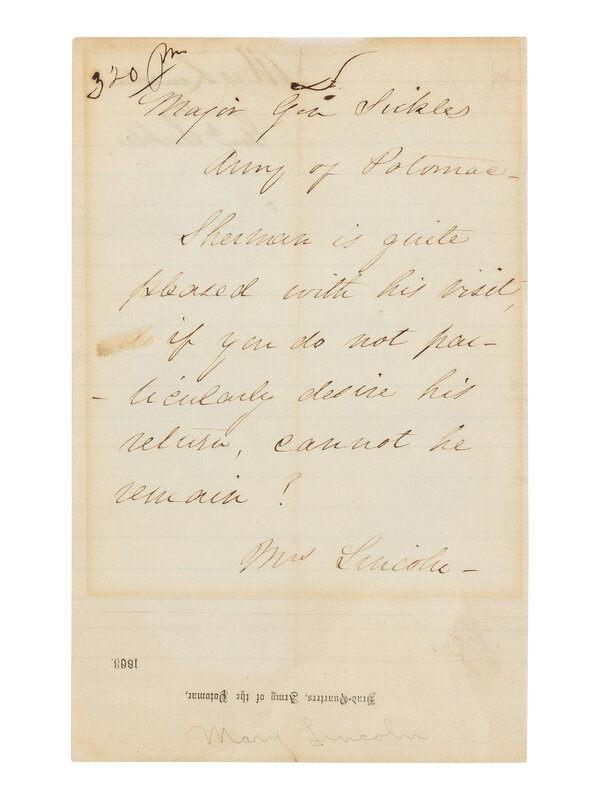 320 Pm
Major Gen Sickles
Army of Potomac -
Sherman is quite
pleased with his visit,
do if you do not par-
- ticularly desire his
return, cannot he
remain?
Mrs Lincoln -
1863.
Head-Quarters, Army of the Potomac,
Mary Lincoln